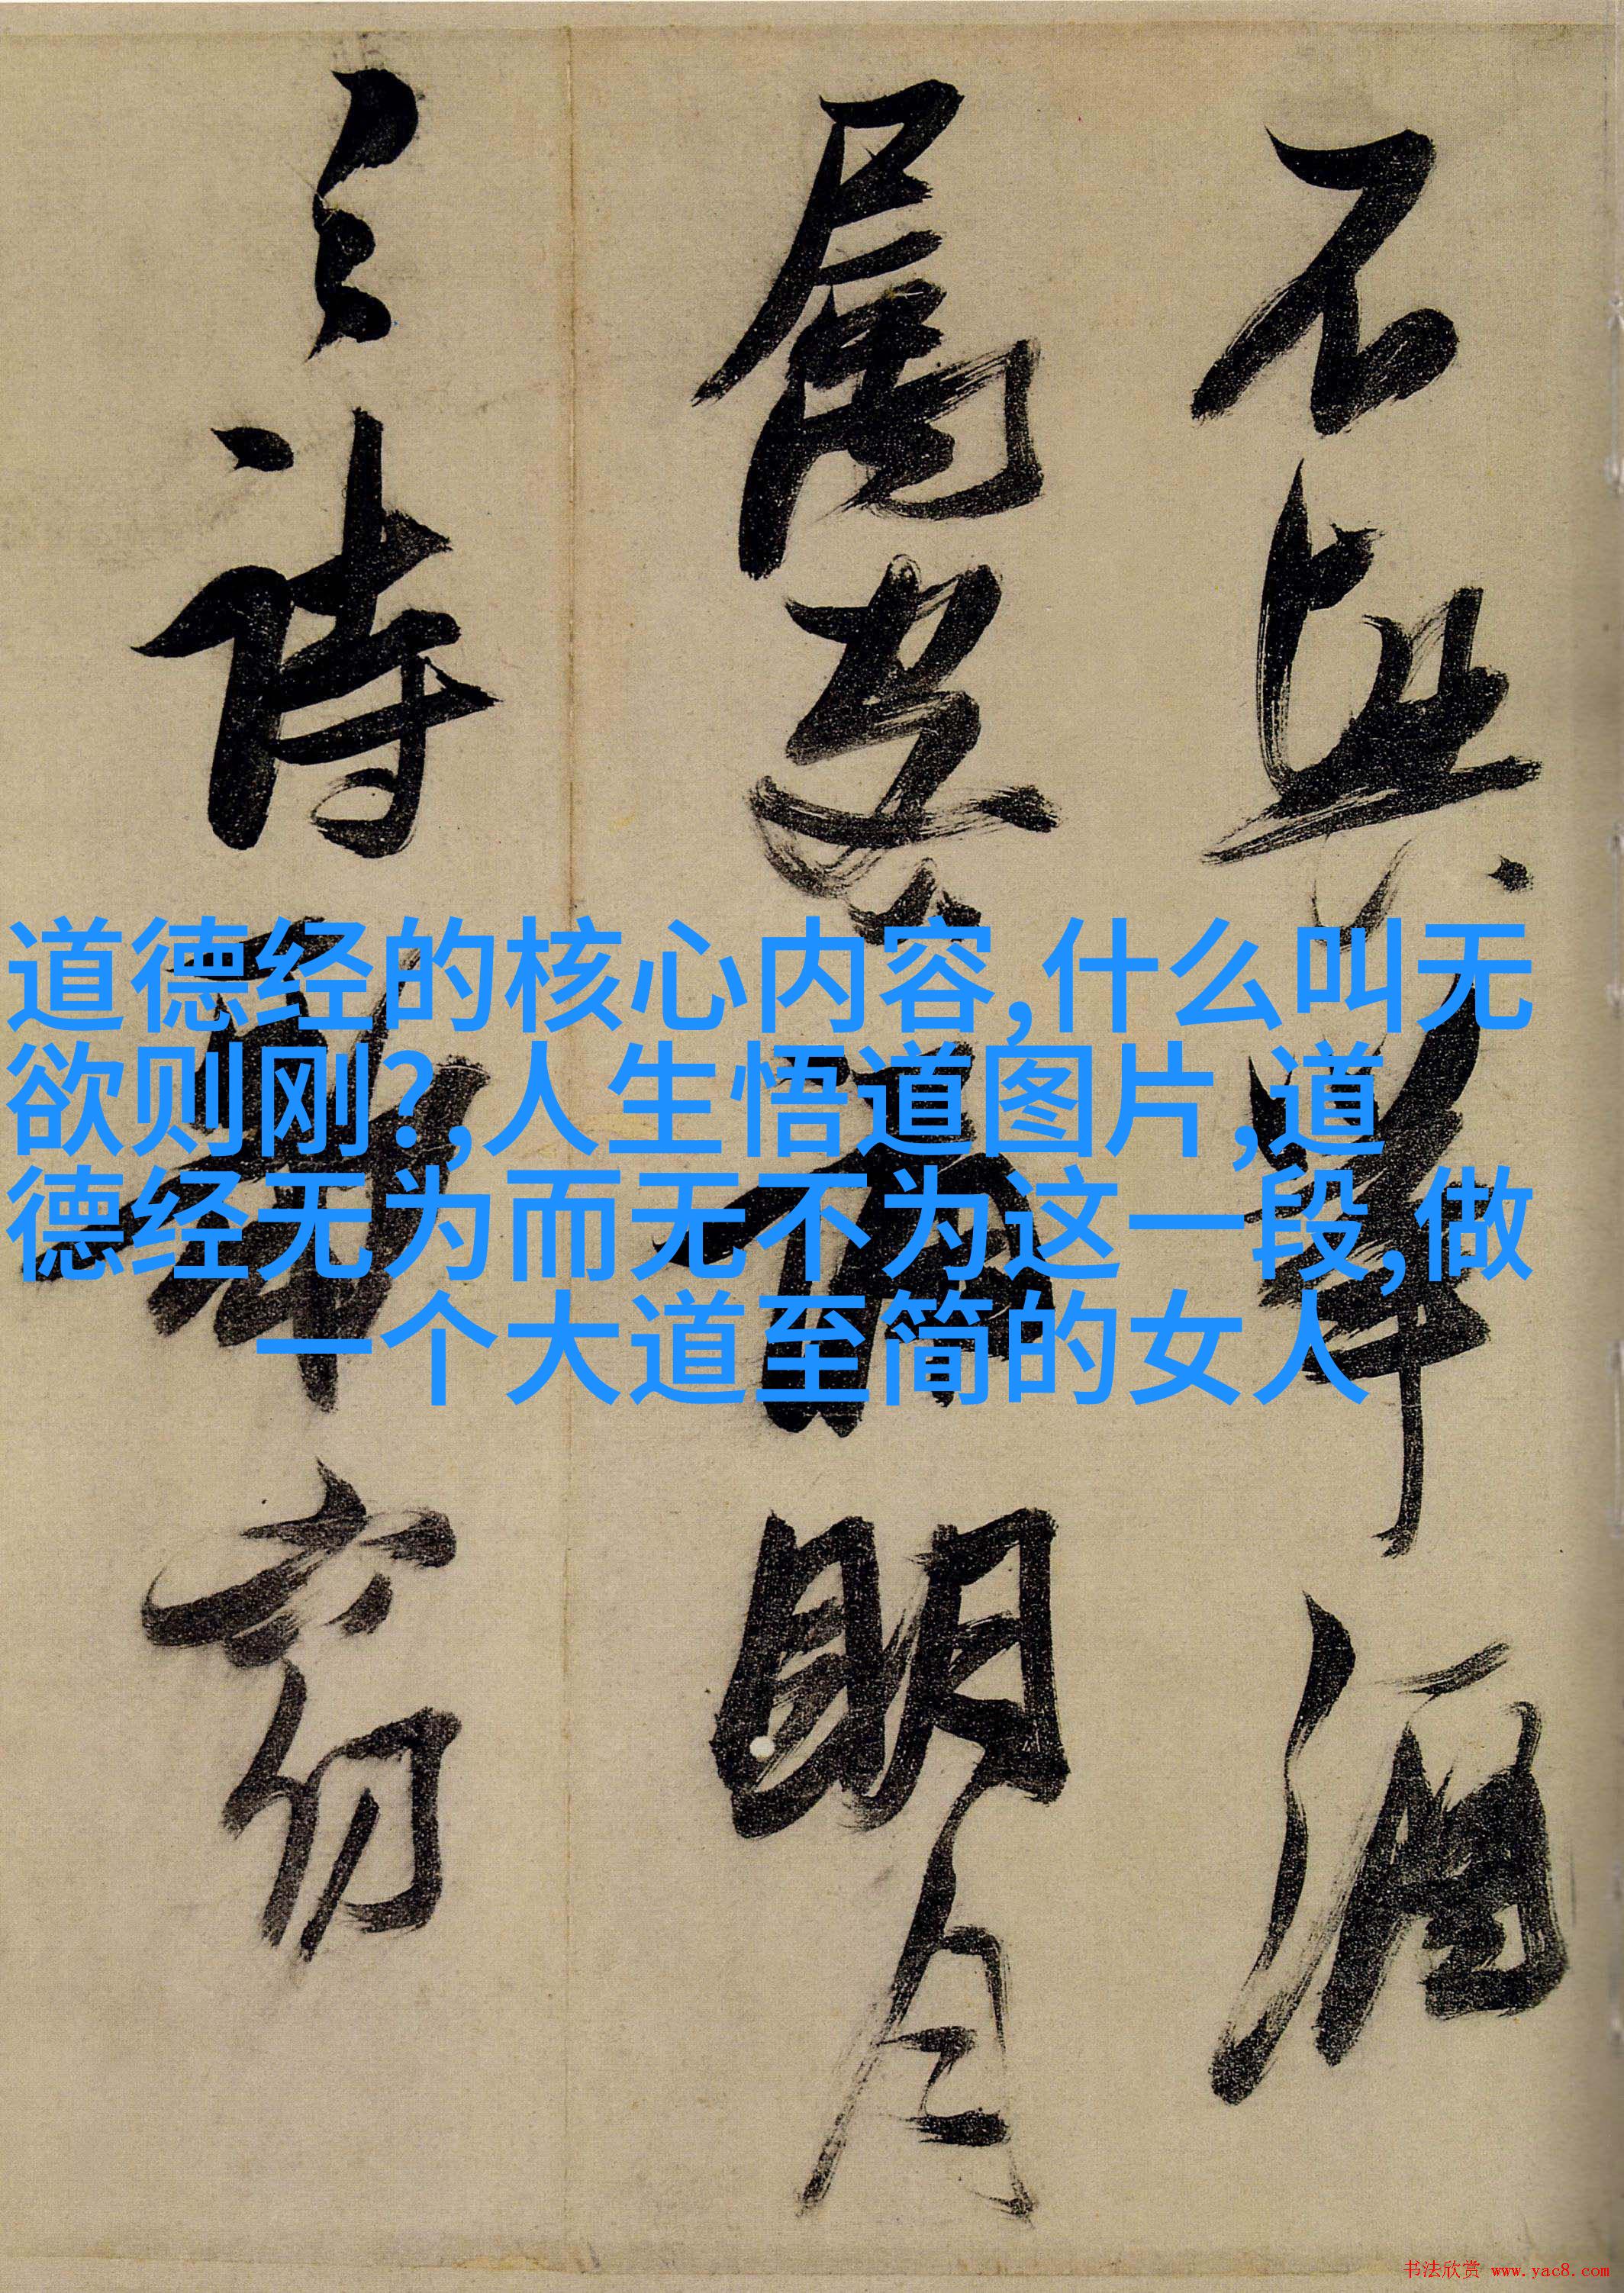 不興舉酒
屬客誦明月
之詩歌窈
道德经的核心内容,什么叫无
欲则刚?,人生悟道图片,道
德经无为而无不为这一段,做
一个大道至简的女人
书法欣赏 www.yac8.com